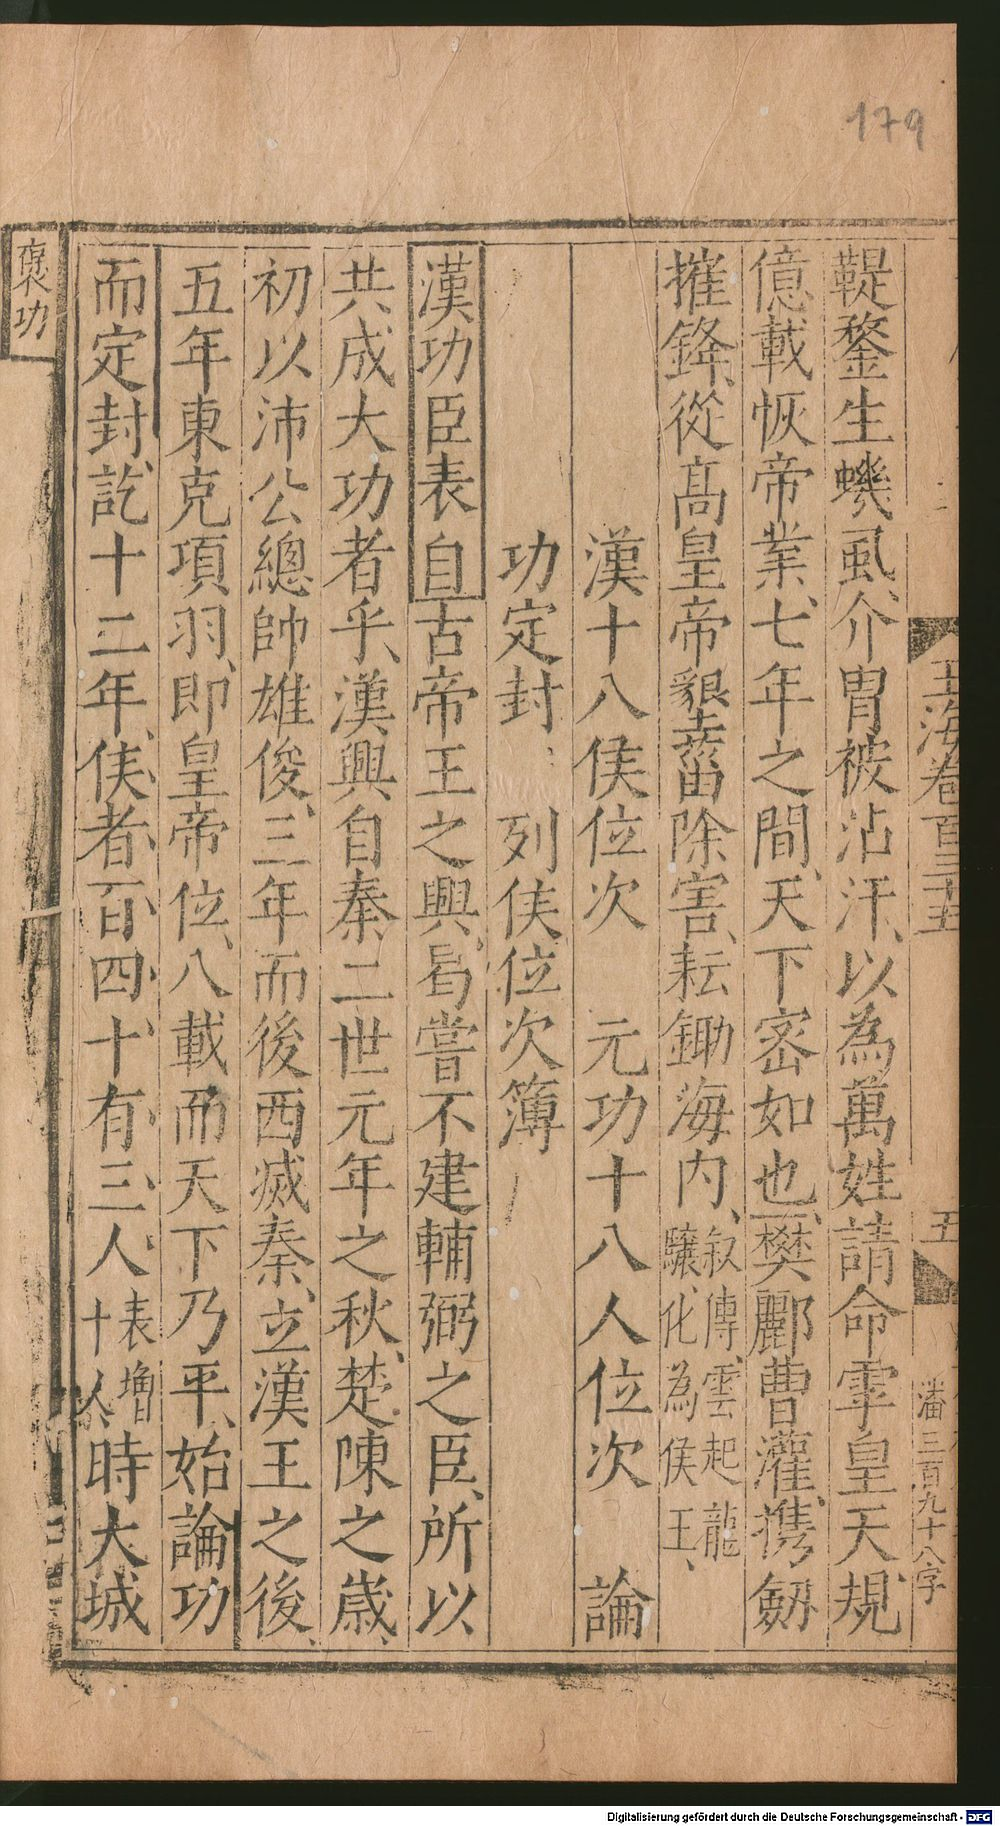 179
玉海卷百三十五
五
潘三百九十八字
鞮鍪生蟣虱介胄被沾汗以為萬姓請命虖皇天規
億載恢帝業七年之間天下密如也樊酈曹灌攜劒
摧鋒從髙皇帝墾菑除害耘鋤海内叙傳雲起龍驤化為侯王
漢十八侯位次 元功十八人位次 論
功定封 列侯位次簿
漢功臣表自古帝王之興曷嘗不建輔弼之臣所以
共成大功者乎漢興自秦二世元年之秋楚陳之歳
初以沛公總帥雄俊三年而後西滅秦立漢王之後
五年東克項羽即皇帝位八載而天下乃平始論功
而定封訖十二年侯者百四十有三人表增十人時大城
褒功
Digitalisierung gefördert durch die Deutsche Forschungsgemeinschaft - DFG